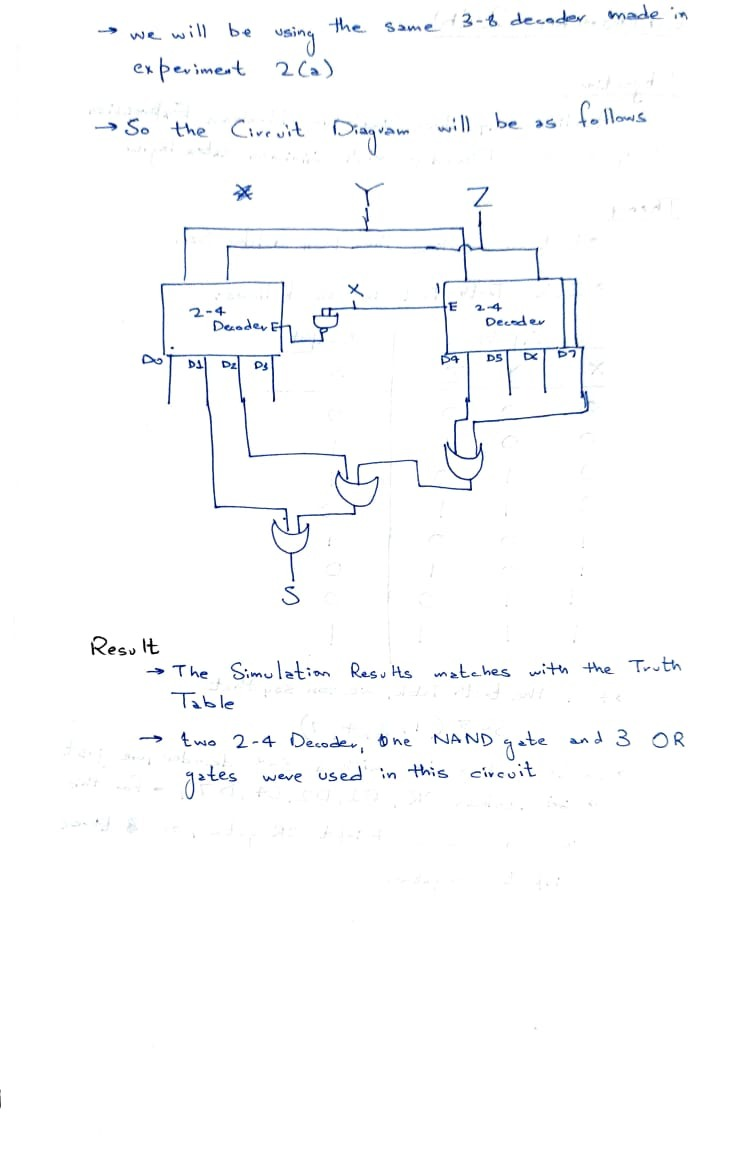 → we will be using the same 3-8 decoder made in
experiment 2(a)
→ So the Circuit Diagram will be as follows
Y Z
X
2-4
Decoder E
E 2-4
Decoder
D0 D1 D2 D3
D4 D5 D7
S
Result
→ The Simulation Results matches with the Truth
Table
→ two 2-4 Decoder, One NAND gate and 3 OR
gates were used in this circuit